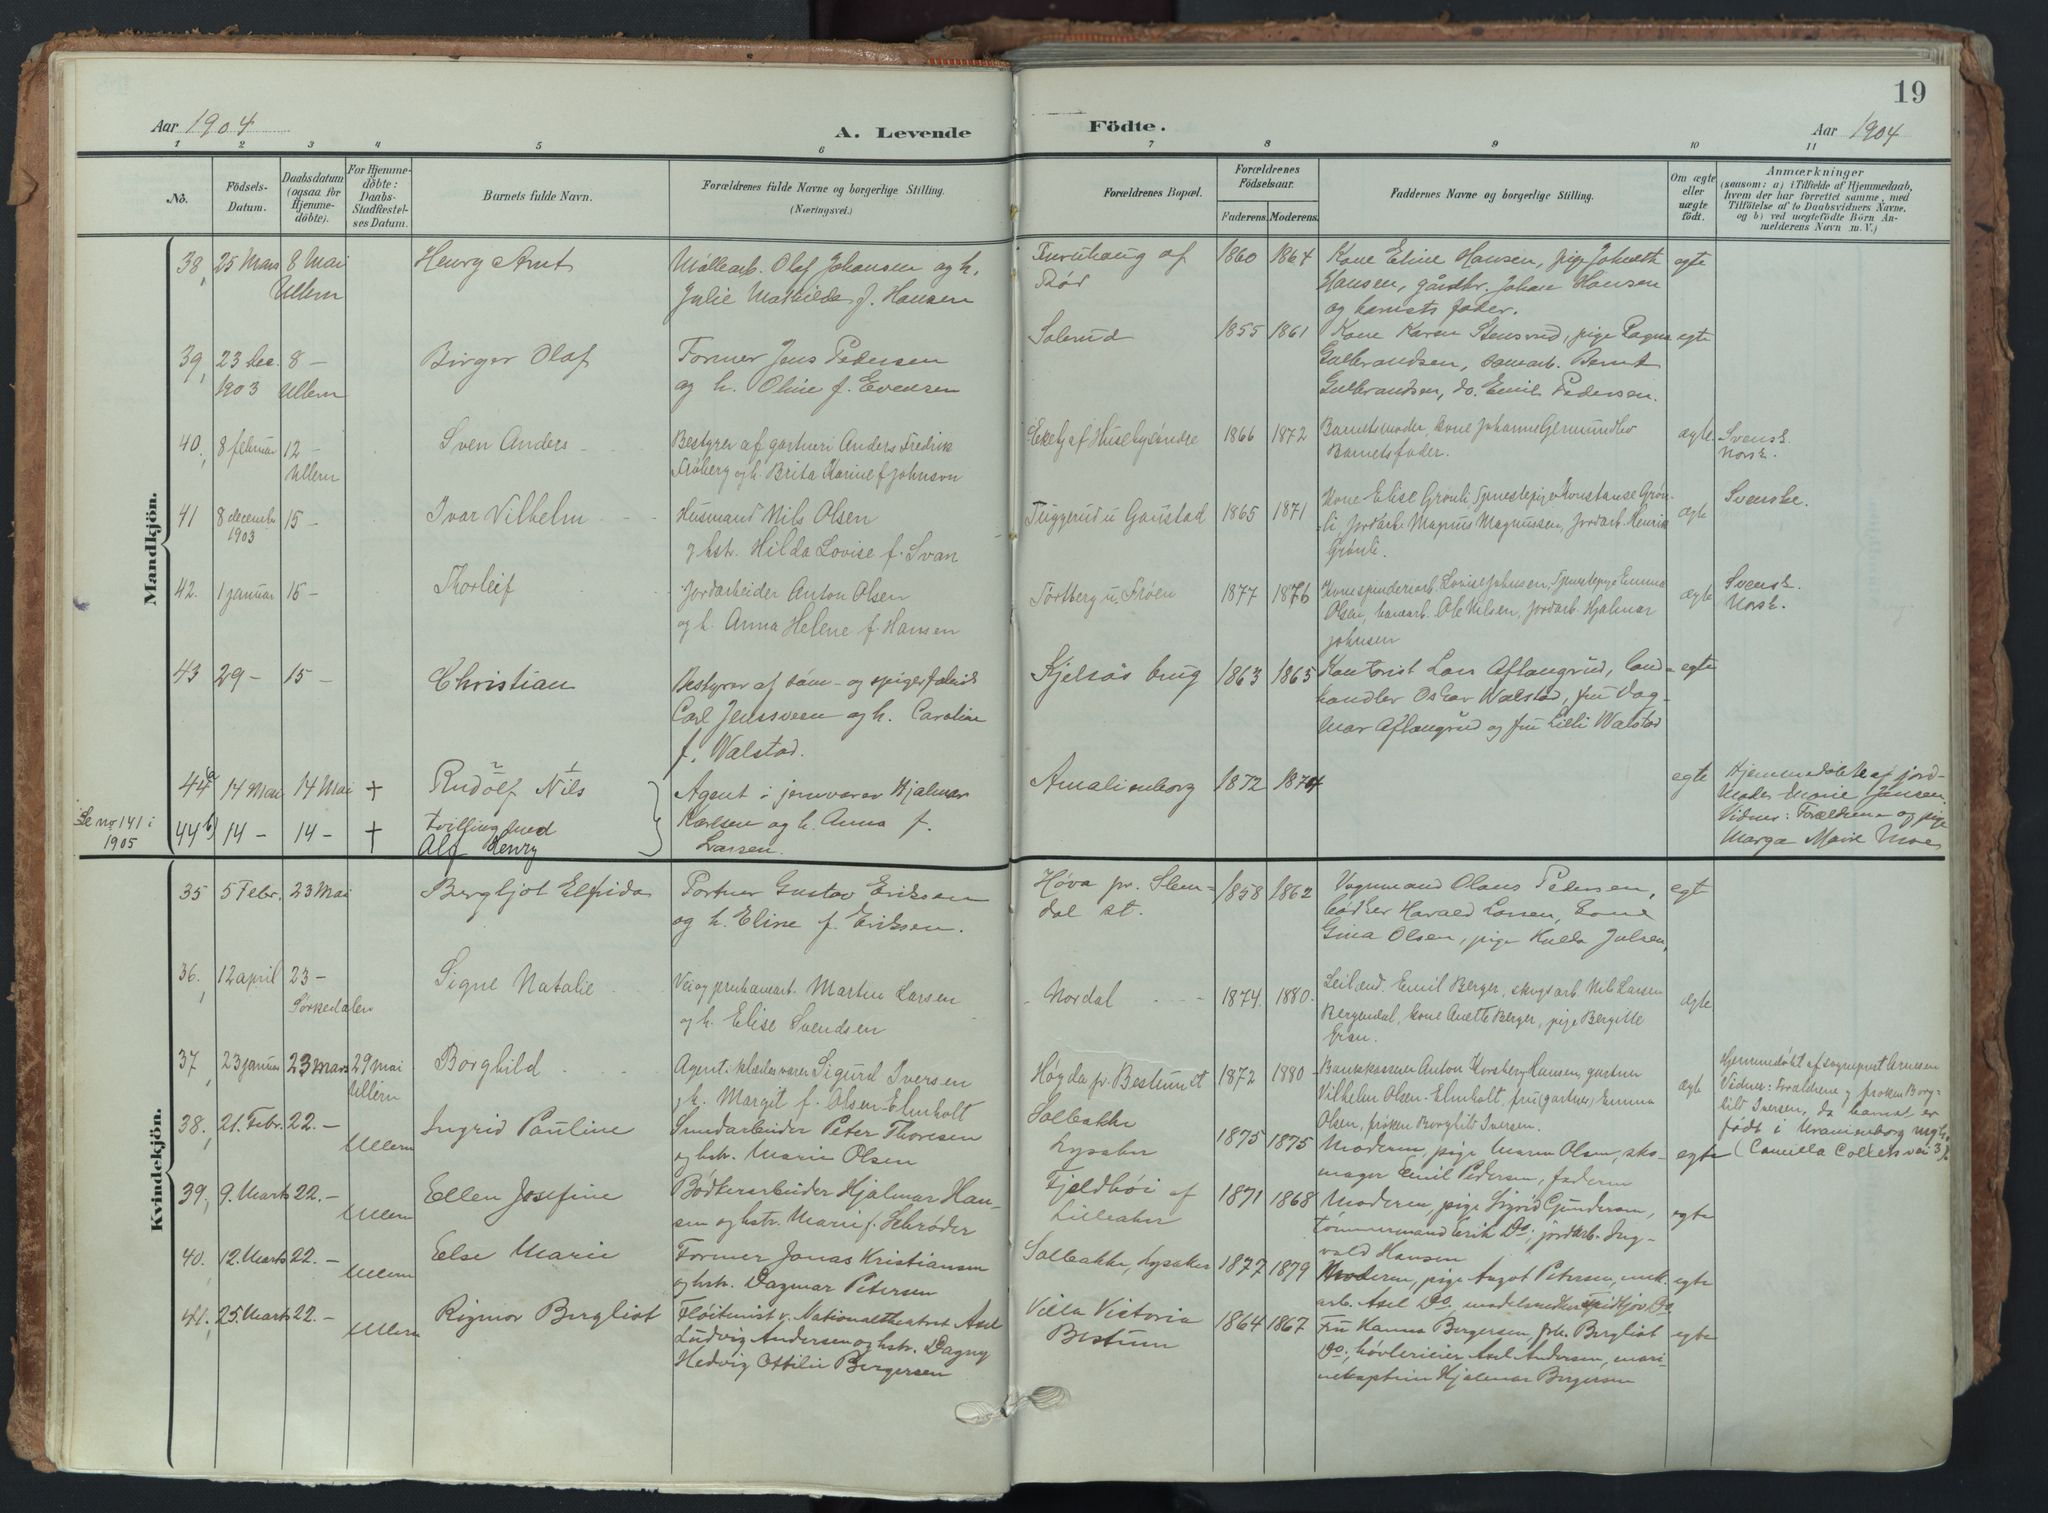 19
Aar 1904
A. Levende
Födte.
Aar 1904
1 2 3 4 5 6 7 8 9 10 11
No.
Födsels-
Datum.
Daabsdatum
(ogsaa for
Hjemme-
döbte).
For Hjemme-
döbte:
Daabs-
Stadfæstel-
ses Datum.
Barnets fulde Navn.
Forældrenes fulde Navne og borgerlige Stilling.
(Næringsvei.)
Forældrenes Bopæl.
Forældrenes
Födselsaar.
Faderens. Moderens.
Faddernes Navne og borgerlige Stilling.
Om ægte
eller
uægte
födt.
Anmærkninger
(saasom: a) i Tilfælde af Hjemmedaab,
hvem der har forrettet samme, med
Tilföielse af to Daabsvidners Navne,
og b) ved uegtefödte Börn An-
melderens Navn m. V.)
Mandkjön.
38, 25 Mars 8 Mai Henry Arnt
Ullern
Møllearb. Olaf Johansen og h.
Julie Mathilde f. Hansen
Furuhaug af
1860 1864
Kone Eline Hansen, pige
Hansen, gårdbr. Johan Hansen
og barnets fader.
egte
39, 23 Dec. 8 – Birger Olaf
1903 Ullern
Former Jens Pedersen
og h. Oline f. Evensen
Solerud
1855 1861
Kone Karen Stensrud, pige Ragna
Gulbrandsen, banearb. Bernt
Gulbrandsen, do. Emil Pedersen.
egte
40, 8 februar 12 – Sven Anders
Ullern
Bestyrer af gartneri Anders Fredrik
Frøberg og h. Brita Karine f Johnson
Ekely af Huseby søndre
1866 1872
Barnets moder, kone Johanne
Barnets fader.
ægte
Svensk.
Norsk.
41 8 december 15 – Ivar Vilhelm
1903
Husmand Nils Olsen
og hst. Hilda Lovise f. Svan
Tuggerud u Gaustad
1865 1871
Kone Elise Grønli Tjenestepige Konstanse Grøn-
li, jordarb. Magnus Magnussen, jordarb. Henrik
Grønli.
ægte
Svenske.
42. 1 januar 15 – Thorleif
Jordarbeider Anton Olsen
og h. Anna Helene f Hansen
Tørtberg u. Frøen
1877 1876
Kone spinderiarb. Lovise Johnsen, Tjenestepige Emma
Olsen, banearb. Ole Nilsen, jordarb. Hjalmar
Johnsen
ægte
Svensk.
Norsk.
43 29 – 15 – Christian
Bestyrer af søm- og spigerfabrik
Carl Jenssveen og h. Caroline
f. Walstad.
Kjelsås brug
1863 1865
Kontorist Lars Aflangrud, land-
handler Oskar Walstad, fru Dag-
mar Aflangrud og fru Lilli Walstad
egte
44a 14 Mai 14 Mai + Rudolf Nils
Agent i jernvarer Hjalmar
Karlsen og h. Anna f.
Larsen.
Amalienborg
1872 1874
egte
Hjemmedøbt af jord-
moder Marie Jensen.
Vidner: Forældrene og pige
Marga Marie Moe
Se no 141 i
1905
44b) 14 – 14 – +
tvilling med
Alf Henry
Kvindekjön.
35 5 Febr. 23 Mai Bergljot Elfrida
Portner Gustav Eriksen
og h. Eline f. Eriksen.
Høva pr. Slem-
dal st.
1858 1862
Vognmand Olaus Pedersen,
bødker Harald Larsen, kone
Gina Olsen, pige Hulda Julsen,
egt
36, 12 april 23 – Signe Natalie
Sørkedalen
Martin Larsen
og h. Elise Svendsen
Nordal
1874. 1880.
Leilænd. Emil Berger, skogsarb. Nils Larsen
Bergendal, kone Anette Berger, pige Bergitte
ægte
37, 23 januar 23 Mars 29 Mai Borghild
Ullern
Agent i klædevarer Sigurd Iversen
og h. Margit f. Olsen-Elmholt
Høyda pr. Bestum st
1872 1880
Bankkasserer Anton Hansen, gartner
Vilhelm Olsen-Elmholt, fru (gartner) Emma
Olsen, frøken Borghild Iversen.
ægte
Hjemmedøbt af sogneprest Arnesen
Vidner: Forældrene og frøken Borg-
hild Iversen, da barnet er
født i Uranienborg mgh.
(Camilla Colletsvei 3)
38, 21. Febr. 22. – Ingrid Pauline
Ullern
Smedarbeider Peter Thoresen
og hst. Marie Olsen
Solbakke
Lysaker
1875 1875
Moderen, pige Maren Olsen, sko-
mager Emil Pedersen, faderen
egte
39, 9. Marts 22. – Ellen Josefine
Ullern
Bødkerarbeider Hjalmar Han-
sen og hst. Marie f. Schrøder
Fjeldhøi af
Lilleaker
1871 1868
Moderen, pige Sigrid Gundersen,
tømmermand Erik Do, jordarb. Ing-
vald Hansen
egte
40. 12. Marts 22. – Else Marie
Ullern
Former Jonas Kristiansen
og hst. Dagmar Petersen
Solbakke, Lysaker
1877 1879
Moderen, pige Aagot Petersen, mek.
arb. Axel Do, modelsnedker Fridtjov Do.
egte
41, 25. Marts 22. – Rigmor Bergliot
Ullern
Fløitenist v. Nationaltheatret Axel
Ludvig Andersen og hst. Dagny
Hedvig Ottilie Bergersen
Villa Victoria
Bestum
1864 1867
Fru Hanna Bergersen, frk. Bergliot
Do, høvlerieier Axel Andersen, mari-
nekaptein Hjalmar Bergersen
egte